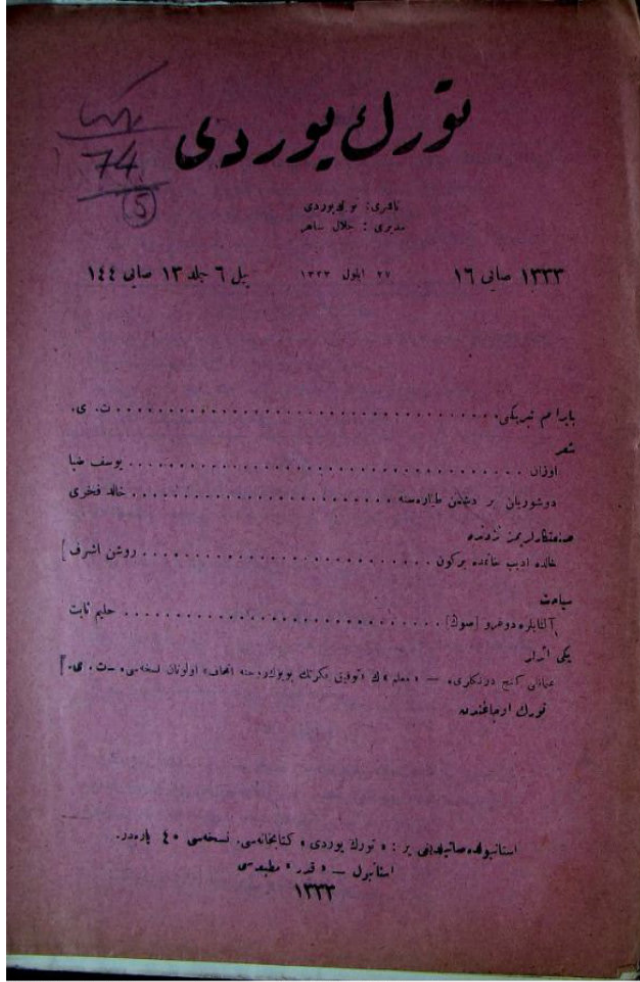 تورك يوردى
74
5
ناشرى: تورك يوردى
مديرى: جلال ساهر
١٣٣٣ صايى ١٦
٢٧ ايلول ١٣٣٣
ييل ٦ جلد ١٣ صايى ١٤٤
بايرام تبريكى . . . . . ت. ى.
شعر
اوزان . . . . . يوسف ضيا
دوشوريلن بر دشمن طياره‌سنه . . . . . خالد فخرى
صنعتكارلريمز نزدنده
خالده اديب خانمده بركون . . . . . روشن اشرف]
سياحت
آلتايلره دوغرو [صوك] . . . . . حليم ثابت
يكى اثرلر
كنج — «معلم» ك «توفيق فكرتك اولونان نسخه‌سى» — ت. ى.]
تورك اوجاغندن
استانبولده صاتيلديغى ير: «تورك يوردى» كتابخانه‌سى. نسخه‌سى ٤٠ پاره‌در.
استانبول — «قدر» مطبعه‌سى
١٣٣٣